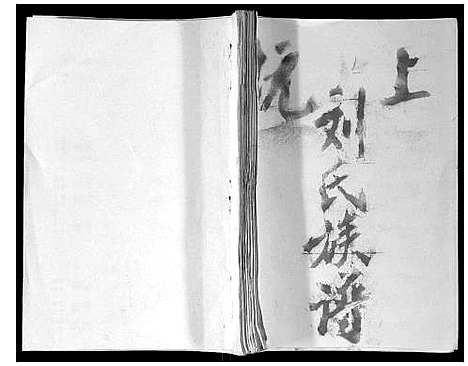 上
刘氏族谱
坑